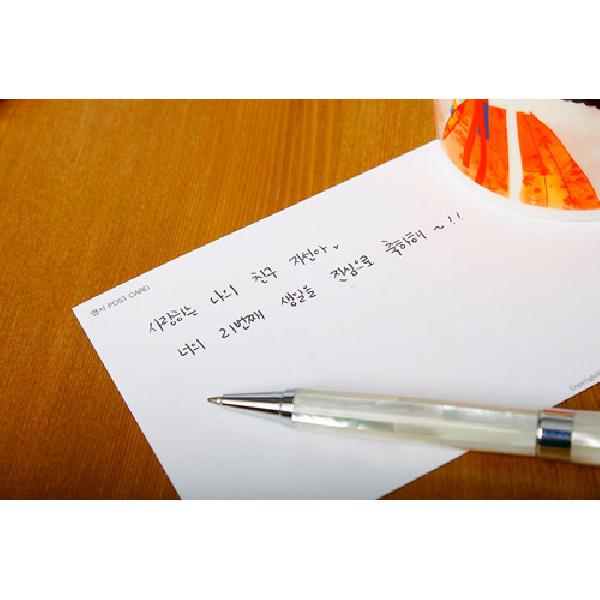 엽서 POST CARD
사랑하는 나의 친구 지선아~
너의 21번째 생일을 진심으로 축하해 ~!!